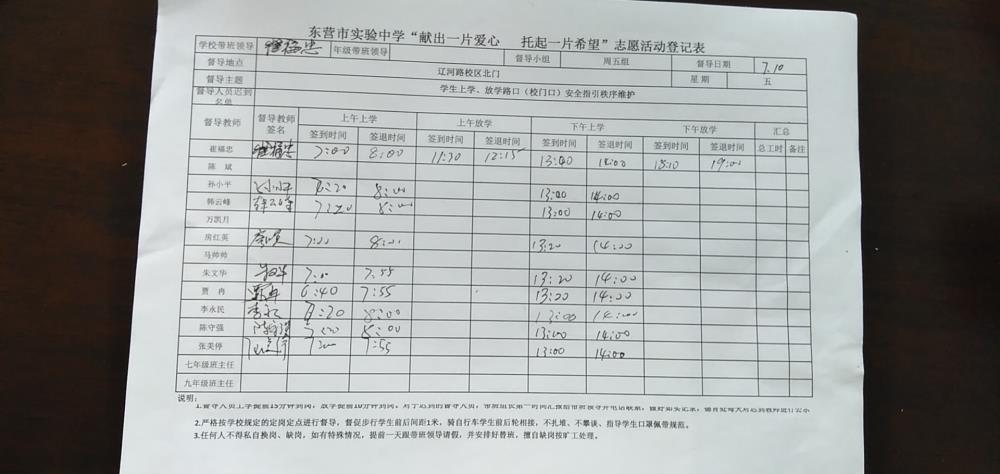 东营市实验中学“献出一片爱心 托起一片希望”志愿活动登记表
学校带班领导 崔福忠 年级带班领导 督导小组 周五组 督导日期 7.10
督导地点 辽河路校区北门 星期 五
督导主题 学生上学、放学路口（校门口）安全指引秩序维护
督导人员迟到名单
督导教师 督导教师签名 上午上学 上午放学 下午上学 下午放学 汇总
签到时间 签退时间 签到时间 签退时间 签到时间 签退时间 签到时间 签退时间 总工时 备注
崔福忠 崔福忠 7:00 8:00 11:30 12:15 13:00 14:00 18:10 19:00
陈 斌
孙小平 孙小平 7:20 8:00 13:00 14:00
韩云峰 韩云峰 7:20 8:00 13:00 14:00
万凯月
房红英 7:00 8:00 13:20 14:00
马帅帅
朱文华 7:00 7:55 13:20 14:00
贾 冉 贾冉 6:40 7:55 13:20 14:00
李永民 7:20 8:00 13:00 14:00
陈守强 8:00 13:00 14:00
张美停 7:55 13:00 14:00
七年级班主任
九年级班主任
说明：
2.严格按学校规定的定岗定点进行督导，督促步行学生前后间距1米，骑自行车学生前后轮相接，不扎堆、不攀谈、指导学生口罩佩带规范。
3.任何人不得私自换岗、缺岗，如有特殊情况，提前一天跟带班领导请假，并安排好替班，擅自缺岗按旷工处理。